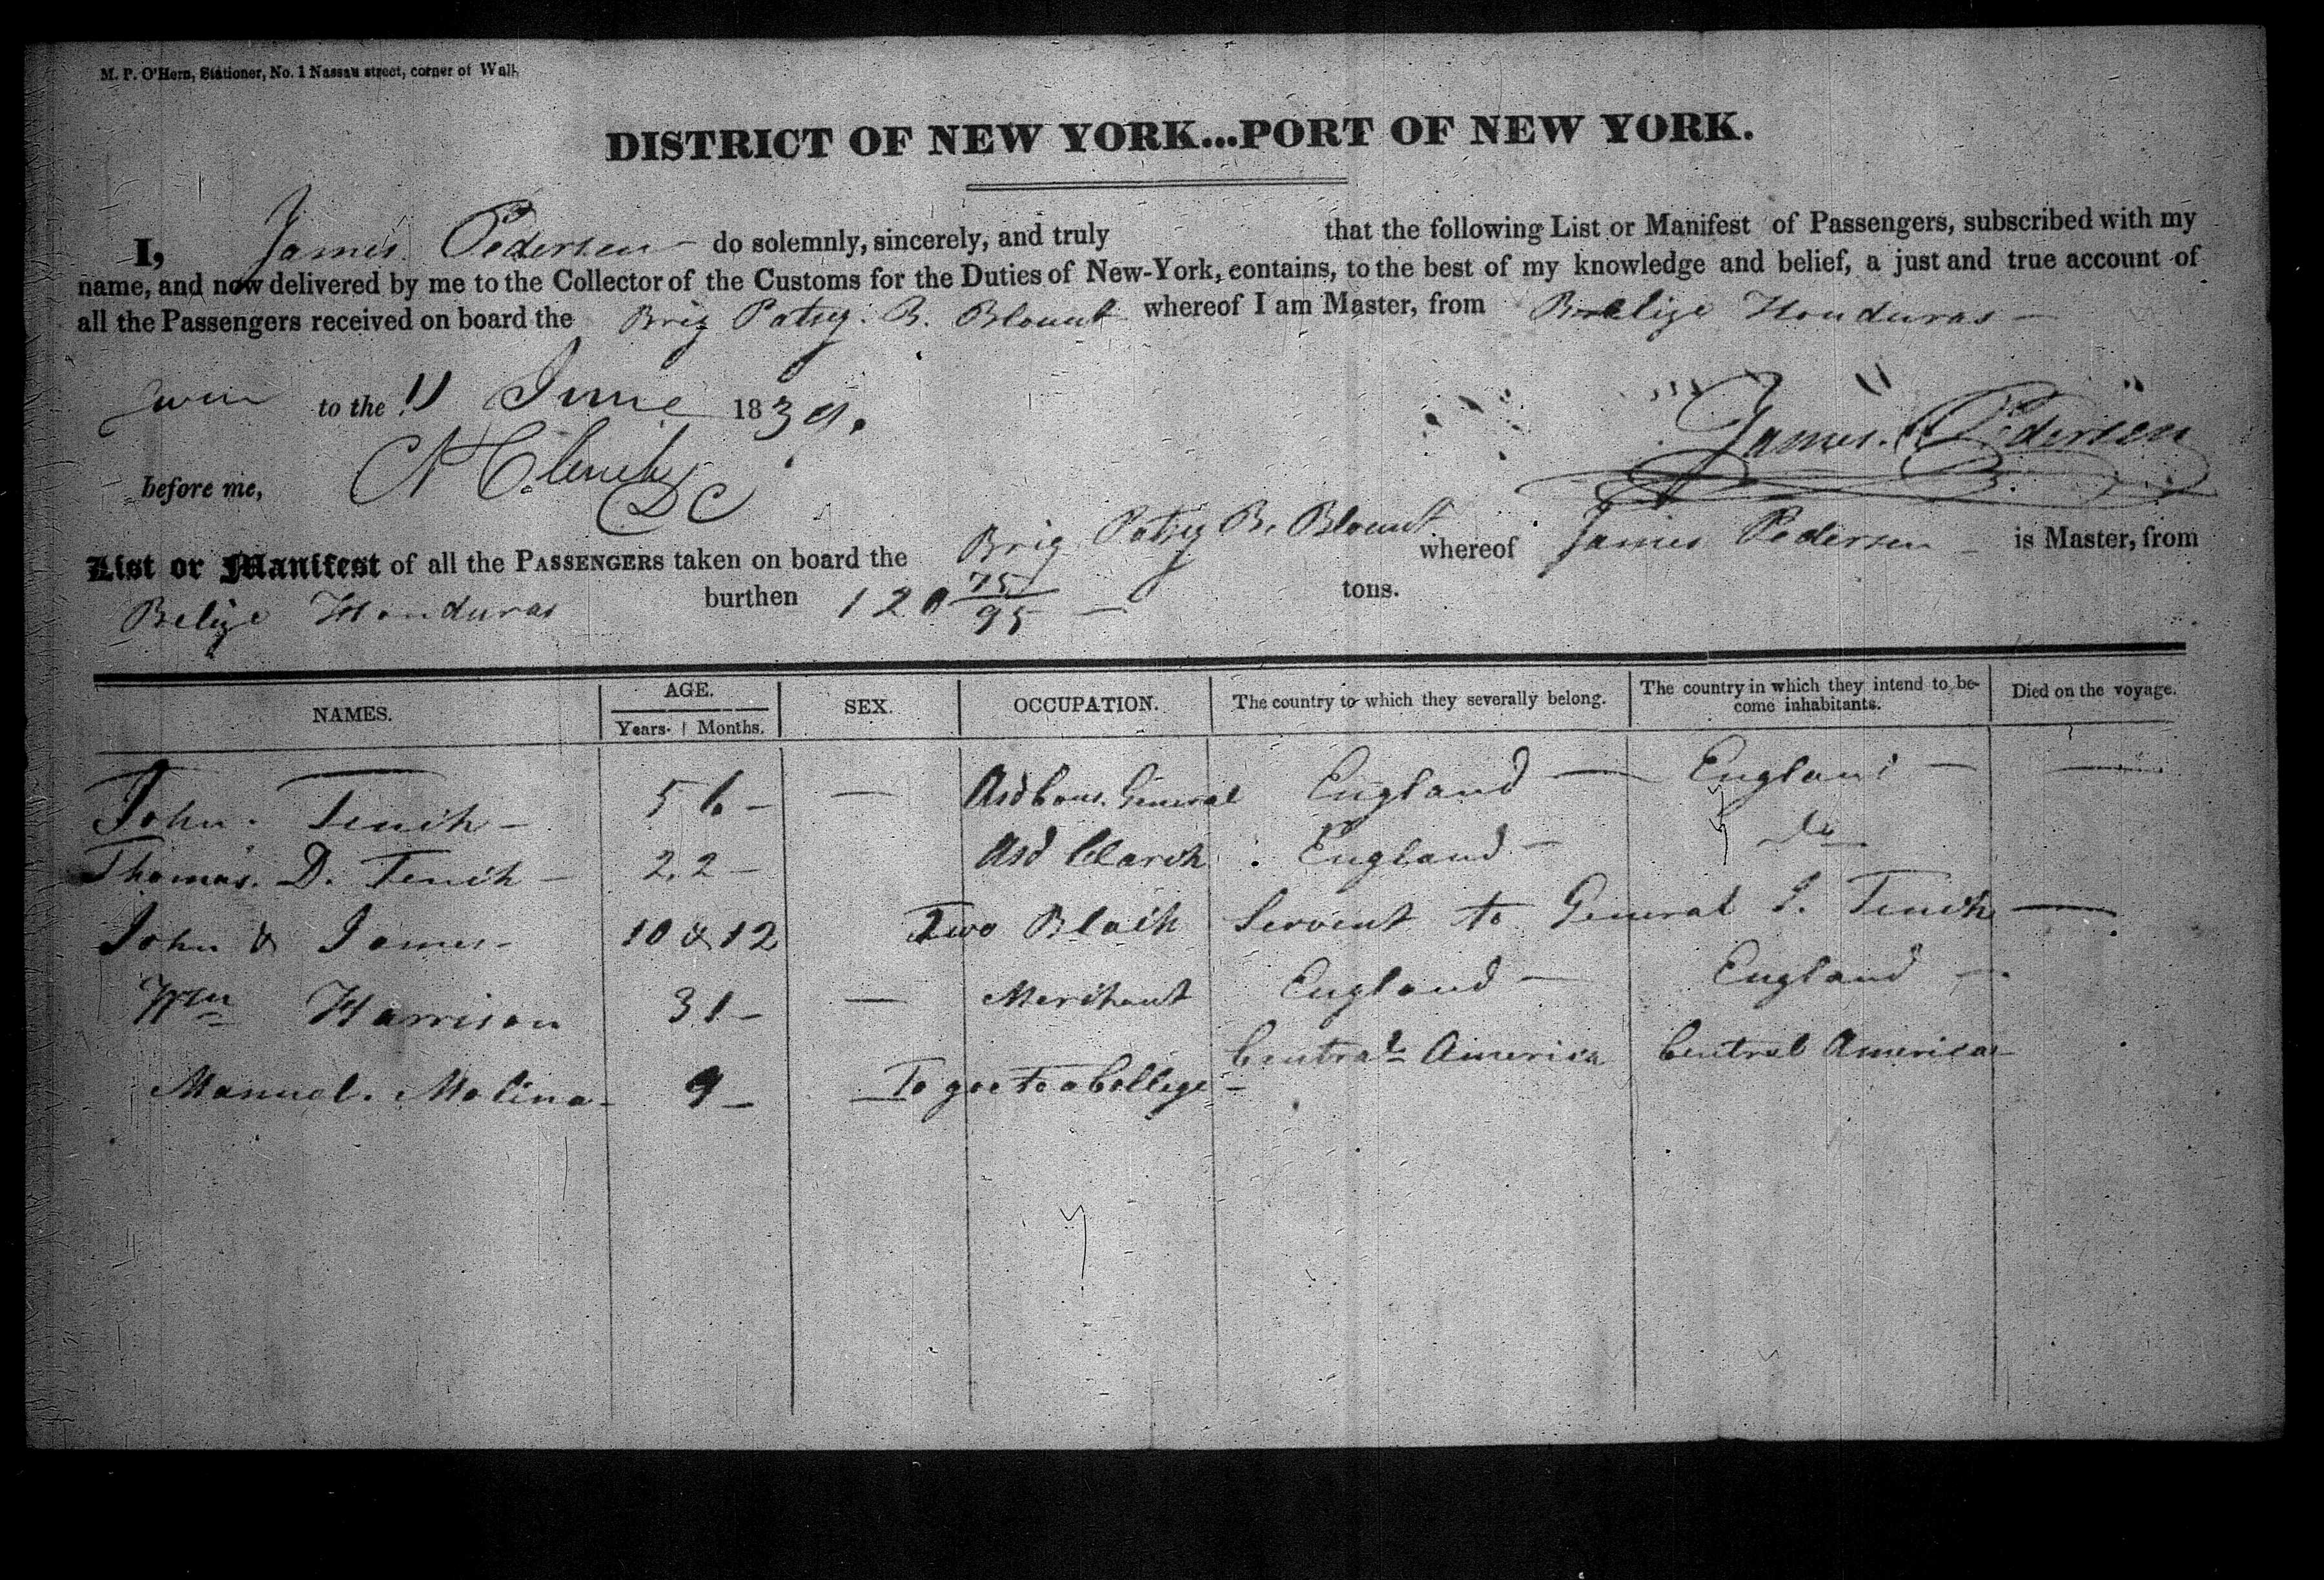 M. P. O'Hern, Stationer, No. 1 Nassau street, corner of Wall.
DISTRICT OF NEW YORK...PORT OF NEW YORK.
I, James Pedersen do solemnly, sincerely, and truly that the following List or Manifest of Passengers, subscribed with my
name, and now delivered by me to the Collector of the Customs for the Duties of New-York, contains, to the best of my knowledge and belief, a just and true account of
all the Passengers received on board the Brig Patsy. B. Blount whereof I am Master, from Belize Honduras
to the 11 June 1839.
James. Pedersen
before me, DC
List or Manifest of all the PASSENGERS taken on board the Brig Patsy B. Blount whereof James Pedersen is Master, from
Belize Honduras burthen 120 75/95 tons.
NAMES. AGE. SEX. OCCUPATION. The country to which they severally belong. The country in which they intend to be-come inhabitants. Died on the voyage.
Years. Months.
John. Tench 56 — General England England —
Thomas. D. Tench 22 Asd England Do
John & James 10 & 12 Two Black Servent to General J. Tench —
Wm Harrison 31 — Merchant England England
Manuel. Molina 9 To goe to a College Central America Central America